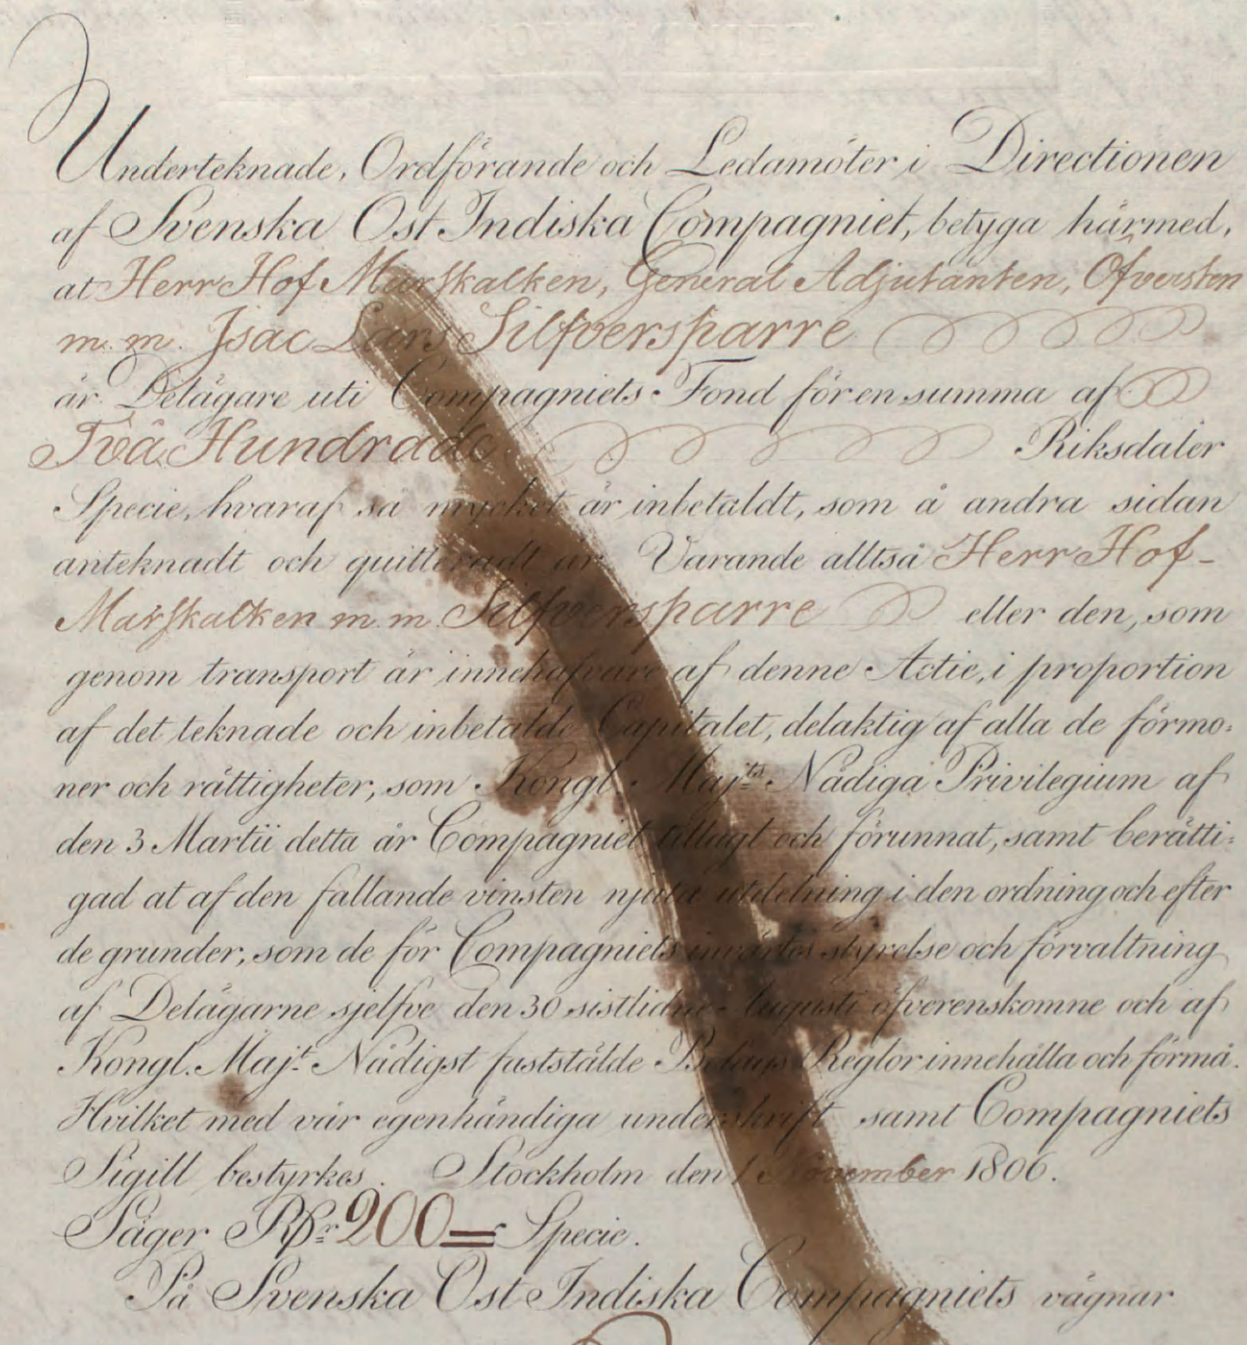 Underteknade, Ordförande och Ledamöter i Directionen
af Svenska Ost Indiska Compagniet, betyga härmed,
at Herr Hof Marskalken, General Adjutanten, Öfversten
m. m. Isac Lars Silfversparre
är Delägare uti Compagniets Fond för en summa af
Två Hundrade Riksdaler
Specie, hvaraf så mycket är inbetaldt, som å andra sidan
anteknadt och quitteradt är Varande alltså Herr Hof-
Marskalken m. m. Silfversparre eller den, som
genom transport är innehafvare af denne Actie, i proportion
af det teknade och inbetalde Capitalet, delaktig af alla de förmo-
ner och rättigheter, som Kongl. Maj:ts Nådiga Privilegium af
den 3 Martii detta år Compagniet tillagt och förunnat, samt berätti-
gad at af den fallande vinsten njuta utdelning i den ordning och efter
de grunder, som de för Compagniets invärtes styrelse och förvaltning
af Delägarne sjelfve den 30 sistlidne Augusti öfverenskomne och af
Kongl. Maj:t Nådigst fastställde Bolags Reglor innehålla och förmå.
Hvilket med vår egenhändiga underskrift samt Compagniets
Sigill bestyrkes. Stockholm den 1 November 1806.
Säger Rdr 200 = Specie.
På Svenska Ost Indiska Compagniets vägnar